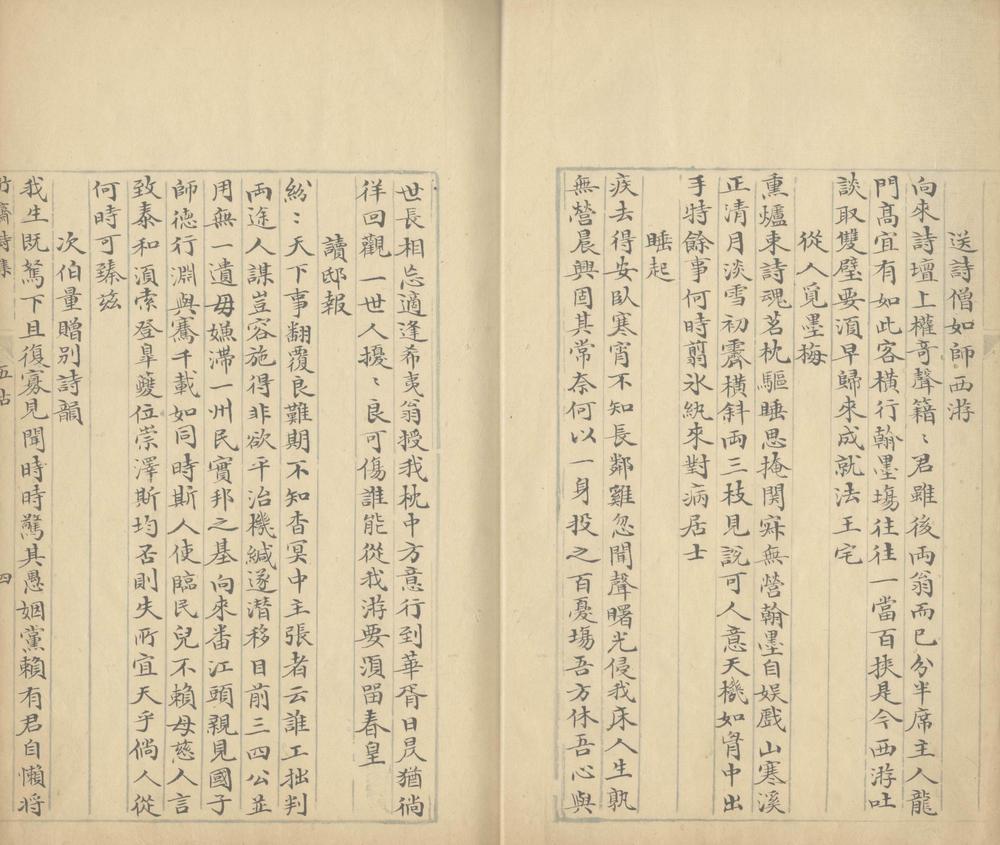 送詩僧如師西游
向來詩壇上權奇聲籍〻君雖後両翁而已分半席主人龍
門髙宜有如此客橫行翰墨塲往往一當百挾是今西游吐
談取雙璧要湏早歸來成就法王宅
從人覓墨梅
熏爐東詩魂茗枕驅睡思掩関寂無營翰墨自娱戲山寒溪
正清月淡雪初霽橫斜両三枝見説可人意天機如胷中出
手特餘事何時翦氷紈來對病居士
睡起
疾去得安臥寒宵不知長鄰雞忽聞聲曙光侵我床人生孰
無營晨興固其常奈何以一身投之百憂塲吾方休吾心與
世長相忘適逢希夷翁授我枕中方意行到華胥日昃猶徜
徉回觀一世人擾〻良可傷誰能從我游要湏留春皇
讀邸報
紛〻天下事翻覆良難期不知杳冥中主張者云誰工拙判
両途人謀豈容施得非欲平治機緘遂潛移目前三四公並
用無一遺毋嫌滯一州民實邦之基向來番江頭親見國子
師德行淵與騫千載如同時斯人使臨民兒不賴母慈人言
致泰和湏索登臯夔位崇澤斯均否則失所宜天乎倘人從
何時可臻茲
次伯量贈别詩韻
我生既駑下且復寡見聞時時驚其愚姻黨賴有君自懶将
竹齋詩集
四